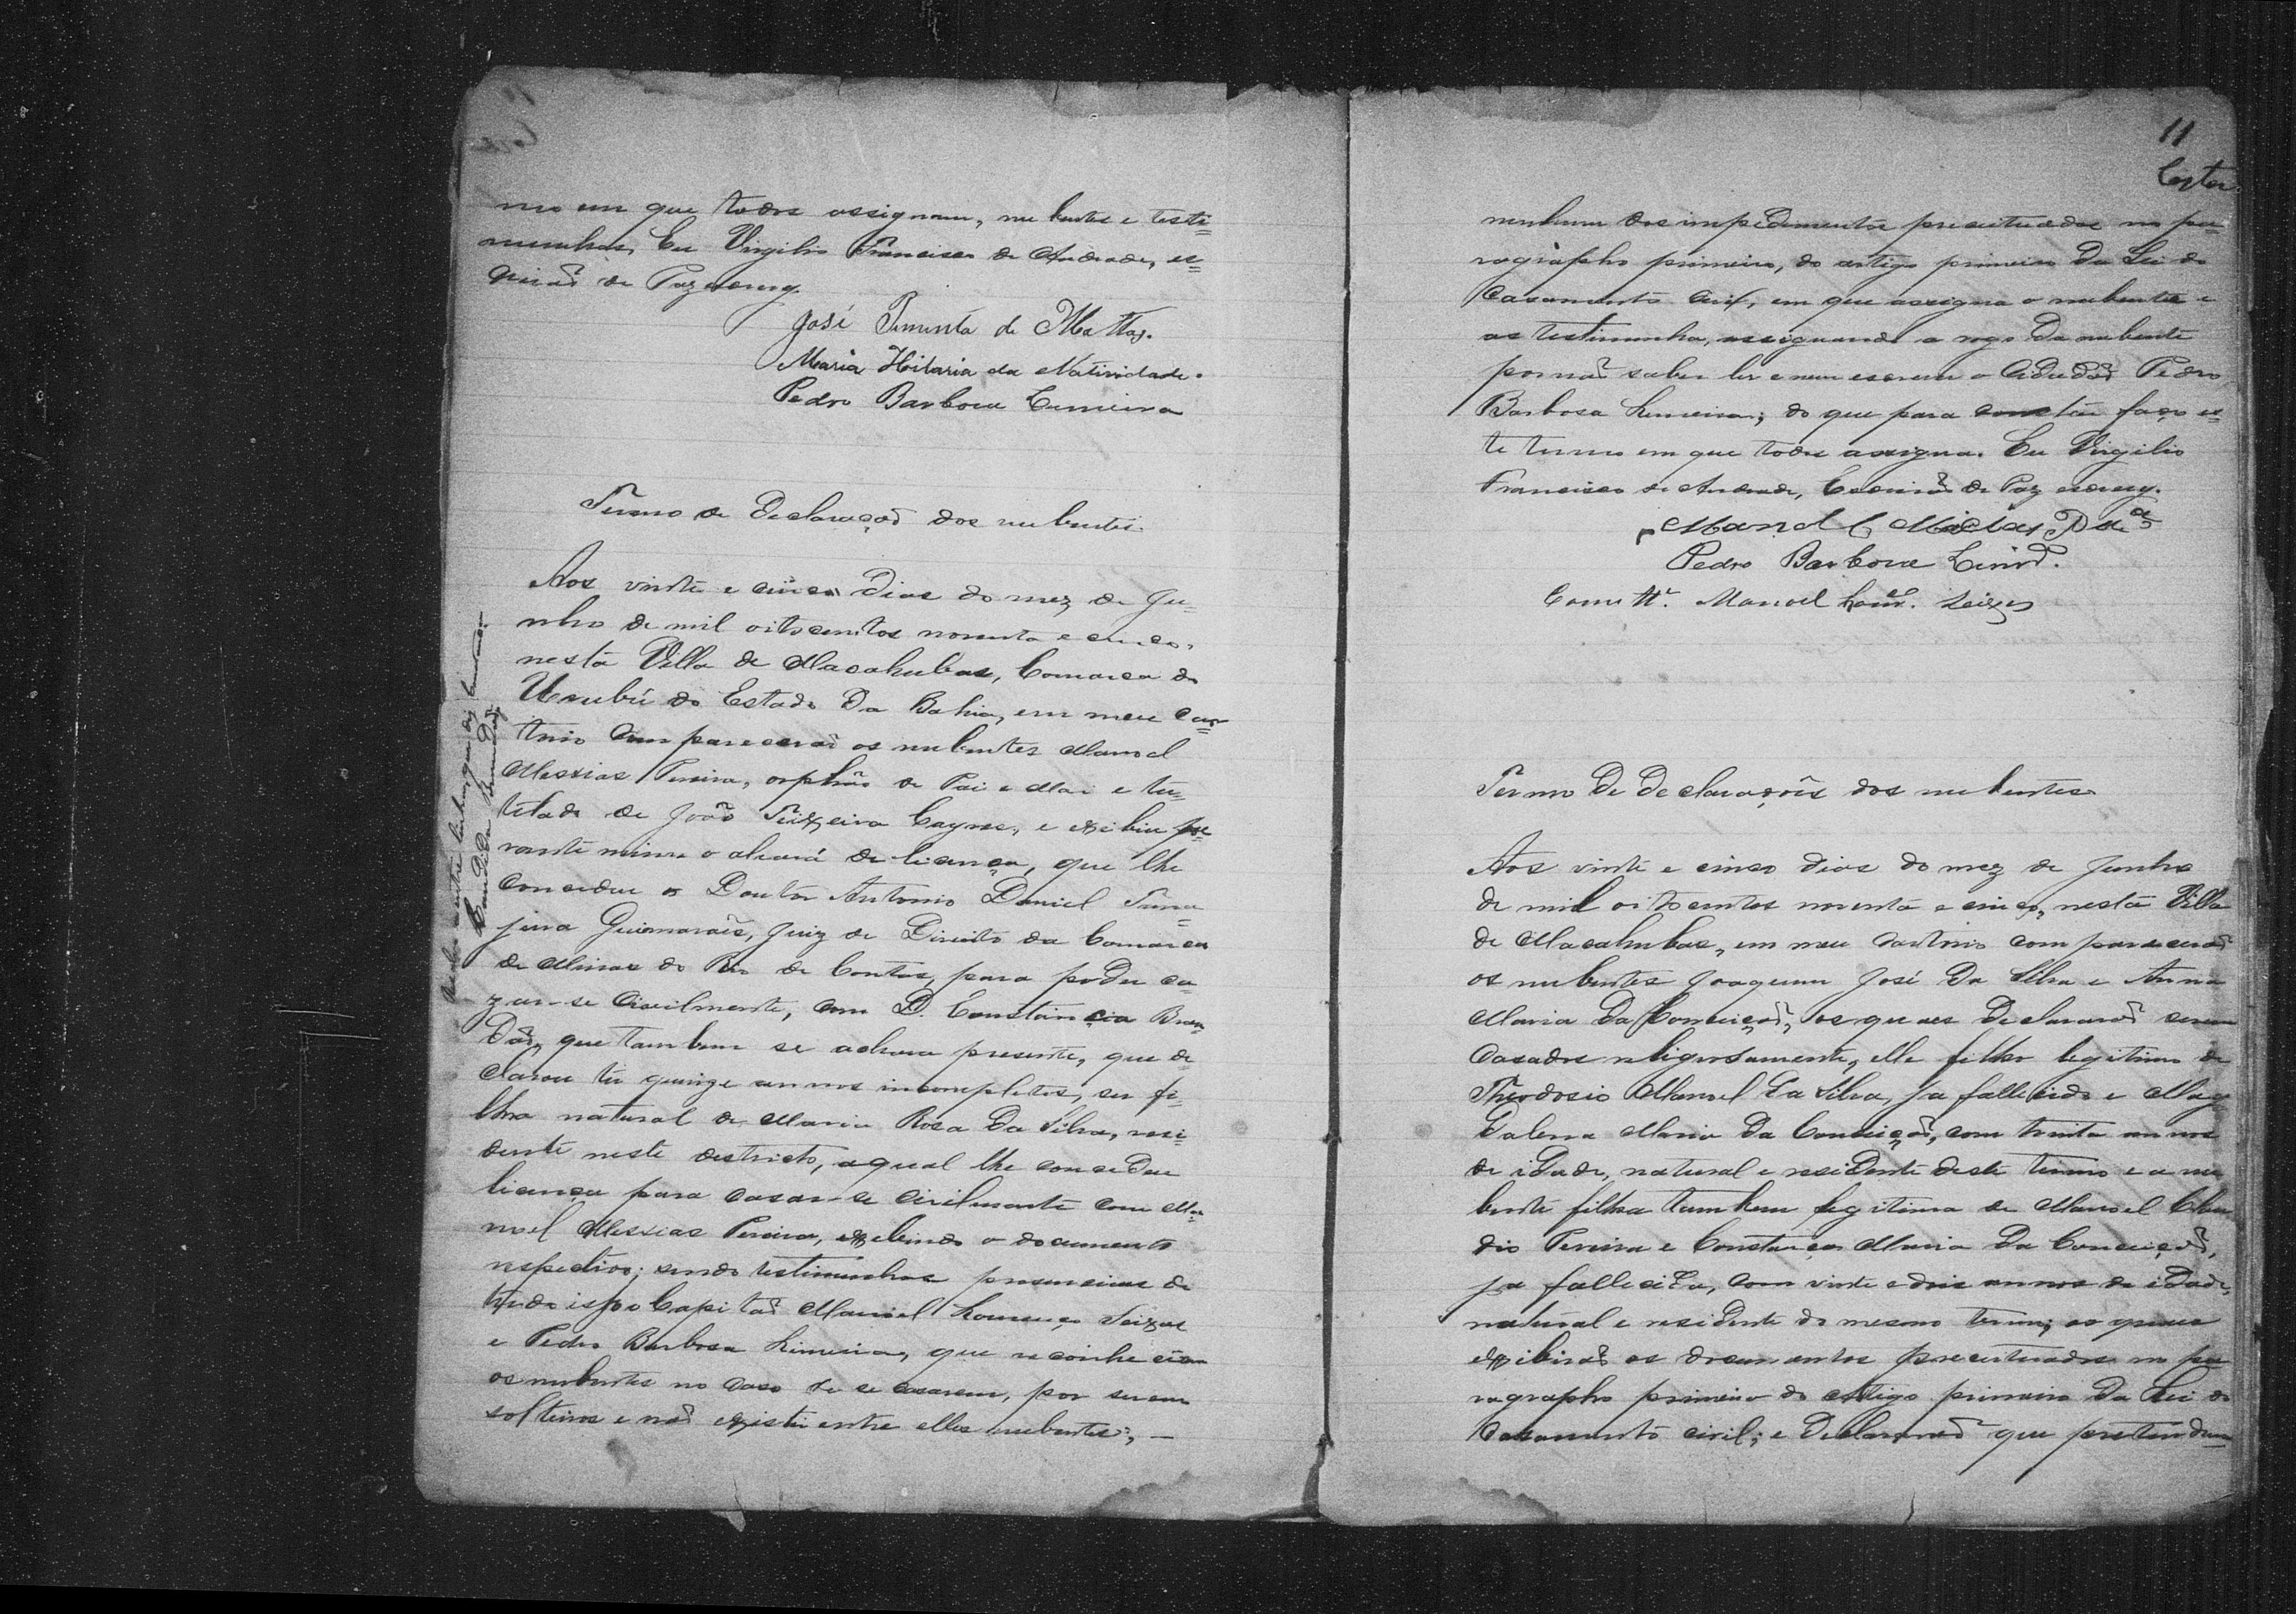 mo em que todos assignam, nubentes e teste=
munhas, Eu Virgilio Francisco de Andrade, es=
crivaõ de Paz escrevy.
José Pimenta de Mattos.
Maria Hilaria da Natividade.
Pedro Barbosa Limeira
Termo de Declaraçaõ dos nubentes.
Aos vinte e cinco dias do mez de Ju=
nho de mil oitocentos noventa e cinco,
nesta Villa de Macahubas, Comarca do
Urubú do Estado da Bahia, em meu car=
torio compareceraõ os nubentes Manoel
Messias Pereira, orphaõ de Pai e Mai e tu=
telado de Joaõ Teixeira, e exibiu pe=
rante mim o alvará de licença, que lhe
concedeu o Doutor Antonio Daniel
Guimarães, Juiz de Direito da Comarca
de Minas do Rio de Contas, para poder ca=
zar-se civilmente, com D. Constancia Bran
daõ, que tambem se achava presente, que de
clarou ter quinze annos incompletos, ser fi=
lha natural de Maria Rosa da Silva, resi=
dente neste destricto, a qual lhe concedeu
licença para casar-se civilmente com Ma=
noel Messias Pereira, exebindo o documento
respectivo; sendo testimunhas presenciaes de
tudo isso o Capitaõ Manoel Lourenço Seixas
e Pedro Barbosa Limeira, que reconhecem
os nubentes no caso de se casarem, por serem
solteiros e naõ existir entre elles nubentes, —
Candida
11
Costa
nenhum dos impedimentos preceituados no pa=
ragrapho primeiro, do artigo primeiro da Lei do
Casamento Civil, em que assigna o nubente e
as testimunha, assignando a rogo da nubente
por naõ saber ler e nem escrever o Cidadaõ Pedro
Barbosa Limeira; do que para constar faço es=
te termo em que todos assigna. Eu Virgilio
Francisco de Andrade, Escrivaõ de Paz escrevy.
Manoel Messias Pra
Pedro Barbosa
Como ttª. Manoel Lourço. Seixas
Termo de Declarações dos nubentes
Aos vinte e cinco dias do mez de Junho
de mil oitocentos noventa e cinco, nesta Villa
de Macahubas, em meu cartorio compareceraõ
os nubentes Joaquim José da Silva e Anna
Maria da Conceiçaõ, os quaes declararaõ serem
casados religiosamente, elle filho legitimo de
Theodosio Manoel da Silva, ja fallecido e Mag=
dalena Maria da Conceiçaõ, com trinta annos
de idade, natural e residente deste termo e a nu
bente filha tambem legitima de Manoel Clau
dio Pereira e Constança Maria da Conceiçaõ,
ja fallecida, com vinte e dois annos de idade,
natural e residente do mesmo termo; os quaes
exibiraõ os documentos preceituados no pa=
ragrapho primeiro do artigo primeiro da Lei do
Casamento civil; e declararaõ que pretendem